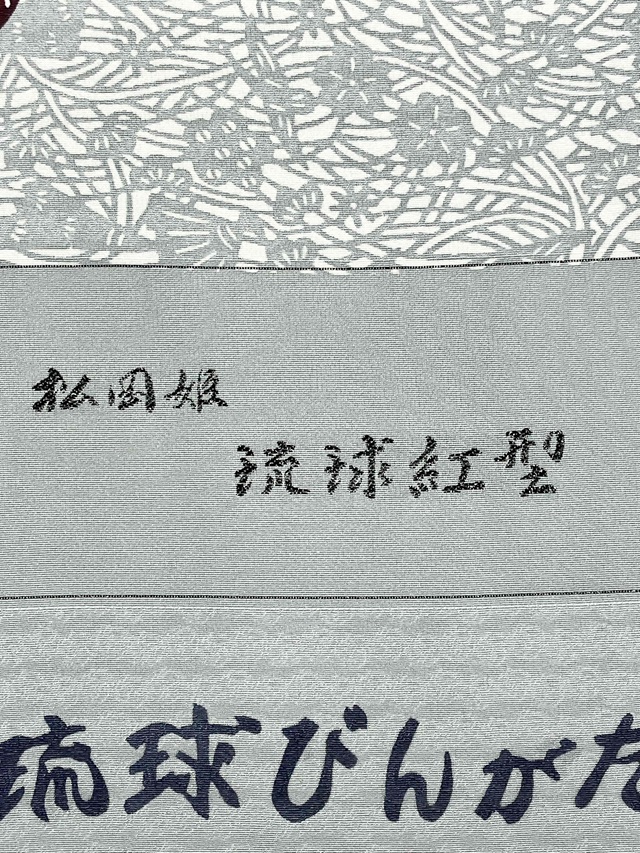 松岡姫
琉球紅型
琉球びんがた